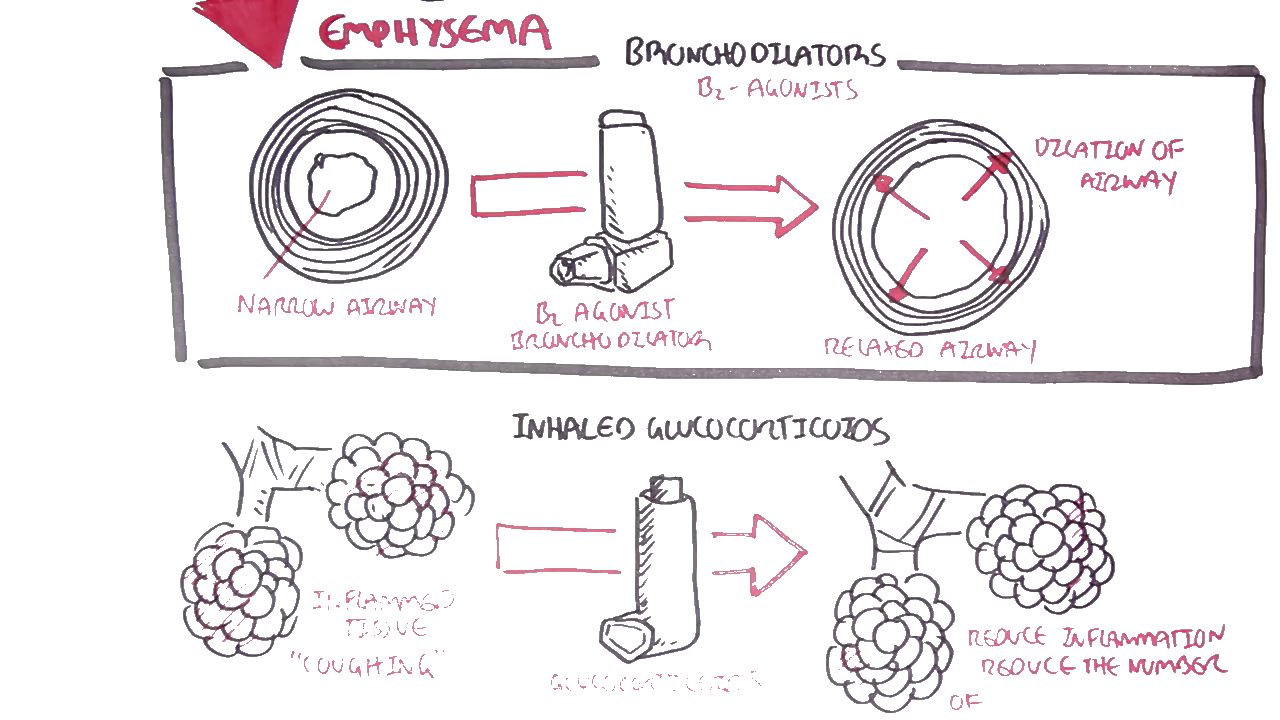 EMPHYSEMA
BRONCHODILATORS
B2-AGONISTS
DILATION OF
AIRWAY
NARROW AIRWAY
B2 AGONIST
BRONCHODILATOR
RELAXED AIRWAY
INHALED GLUCOCORTICOIDS
INFLAMMED
TISSUE
"COUGHING"
GLUCOCORTICOIDS
REDUCE INFLAMMATION
REDUCE THE NUMBER
OF